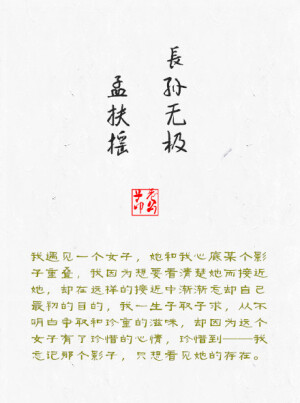 長孙无极
孟扶摇
我遇见一个女子，她和我心底某个影
子重叠，我因为想要看清楚她而接近
她，却在这样的接近中渐渐忘却自己
最初的目的，我一生子取子求，从不
明白争取和珍重的滋味，却因为这个
女子有了珍惜的心情，珍惜到——我
忘记那个影子，只想看见她的存在。